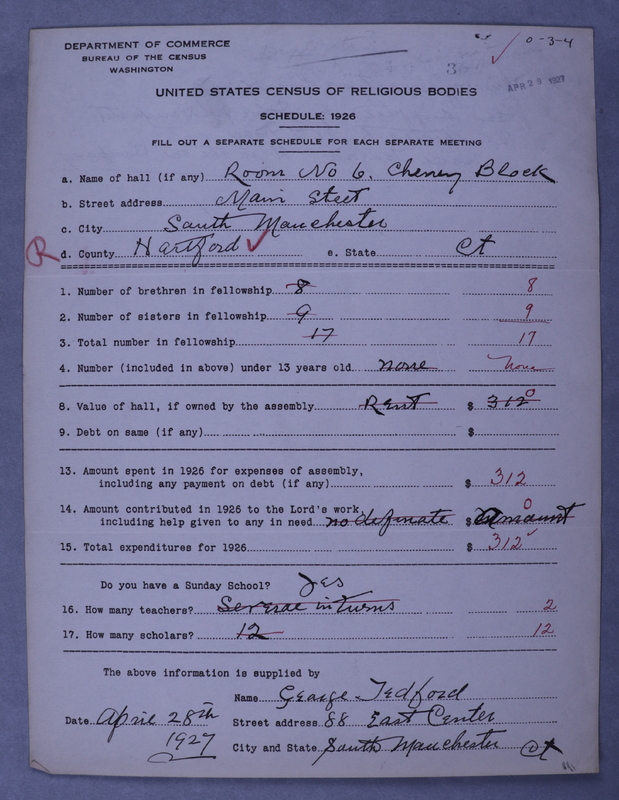 DEPARTMENT OF COMMERCE
BUREAU OF THE CENSUS
WASHINGTON
0-3-4
3
APR 29 1927
UNITED STATES CENSUS OF RELIGIOUS BODIES
SCHEDULE: 1926
FILL OUT A SEPARATE SCHEDULE FOR EACH SEPARATE MEETING
a. Name of hall (if any) Room No 6. Cheney Block
b. Street address Main Steet
c. City South Manchester
R d. County Hartford ✓ e. State Ct
1. Number of brethren in fellowship 8 8
2. Number of sisters in fellowship 9 9
3. Total number in fellowship 17 17
4. Number (included in above) under 13 years old none None
8. Value of hall, if owned by the assembly Rent $ 312 0
9. Debt on same (if any) $
13. Amount spent in 1926 for expenses of assembly,
including any payment on debt (if any) $ 312
14. Amount contributed in 1926 to the Lord's work, 0
including help given to any in need no definate $ amount
15. Total expenditures for 1926 $ 312 ✓
Do you have a Sunday School? Yes
16. How many teachers? Several in turns 2
17. How many scholars? 12 12
The above information is supplied by
Name George Tedford
Date April 28th Street address 88 East Center
1927 City and State South Manchester Ct